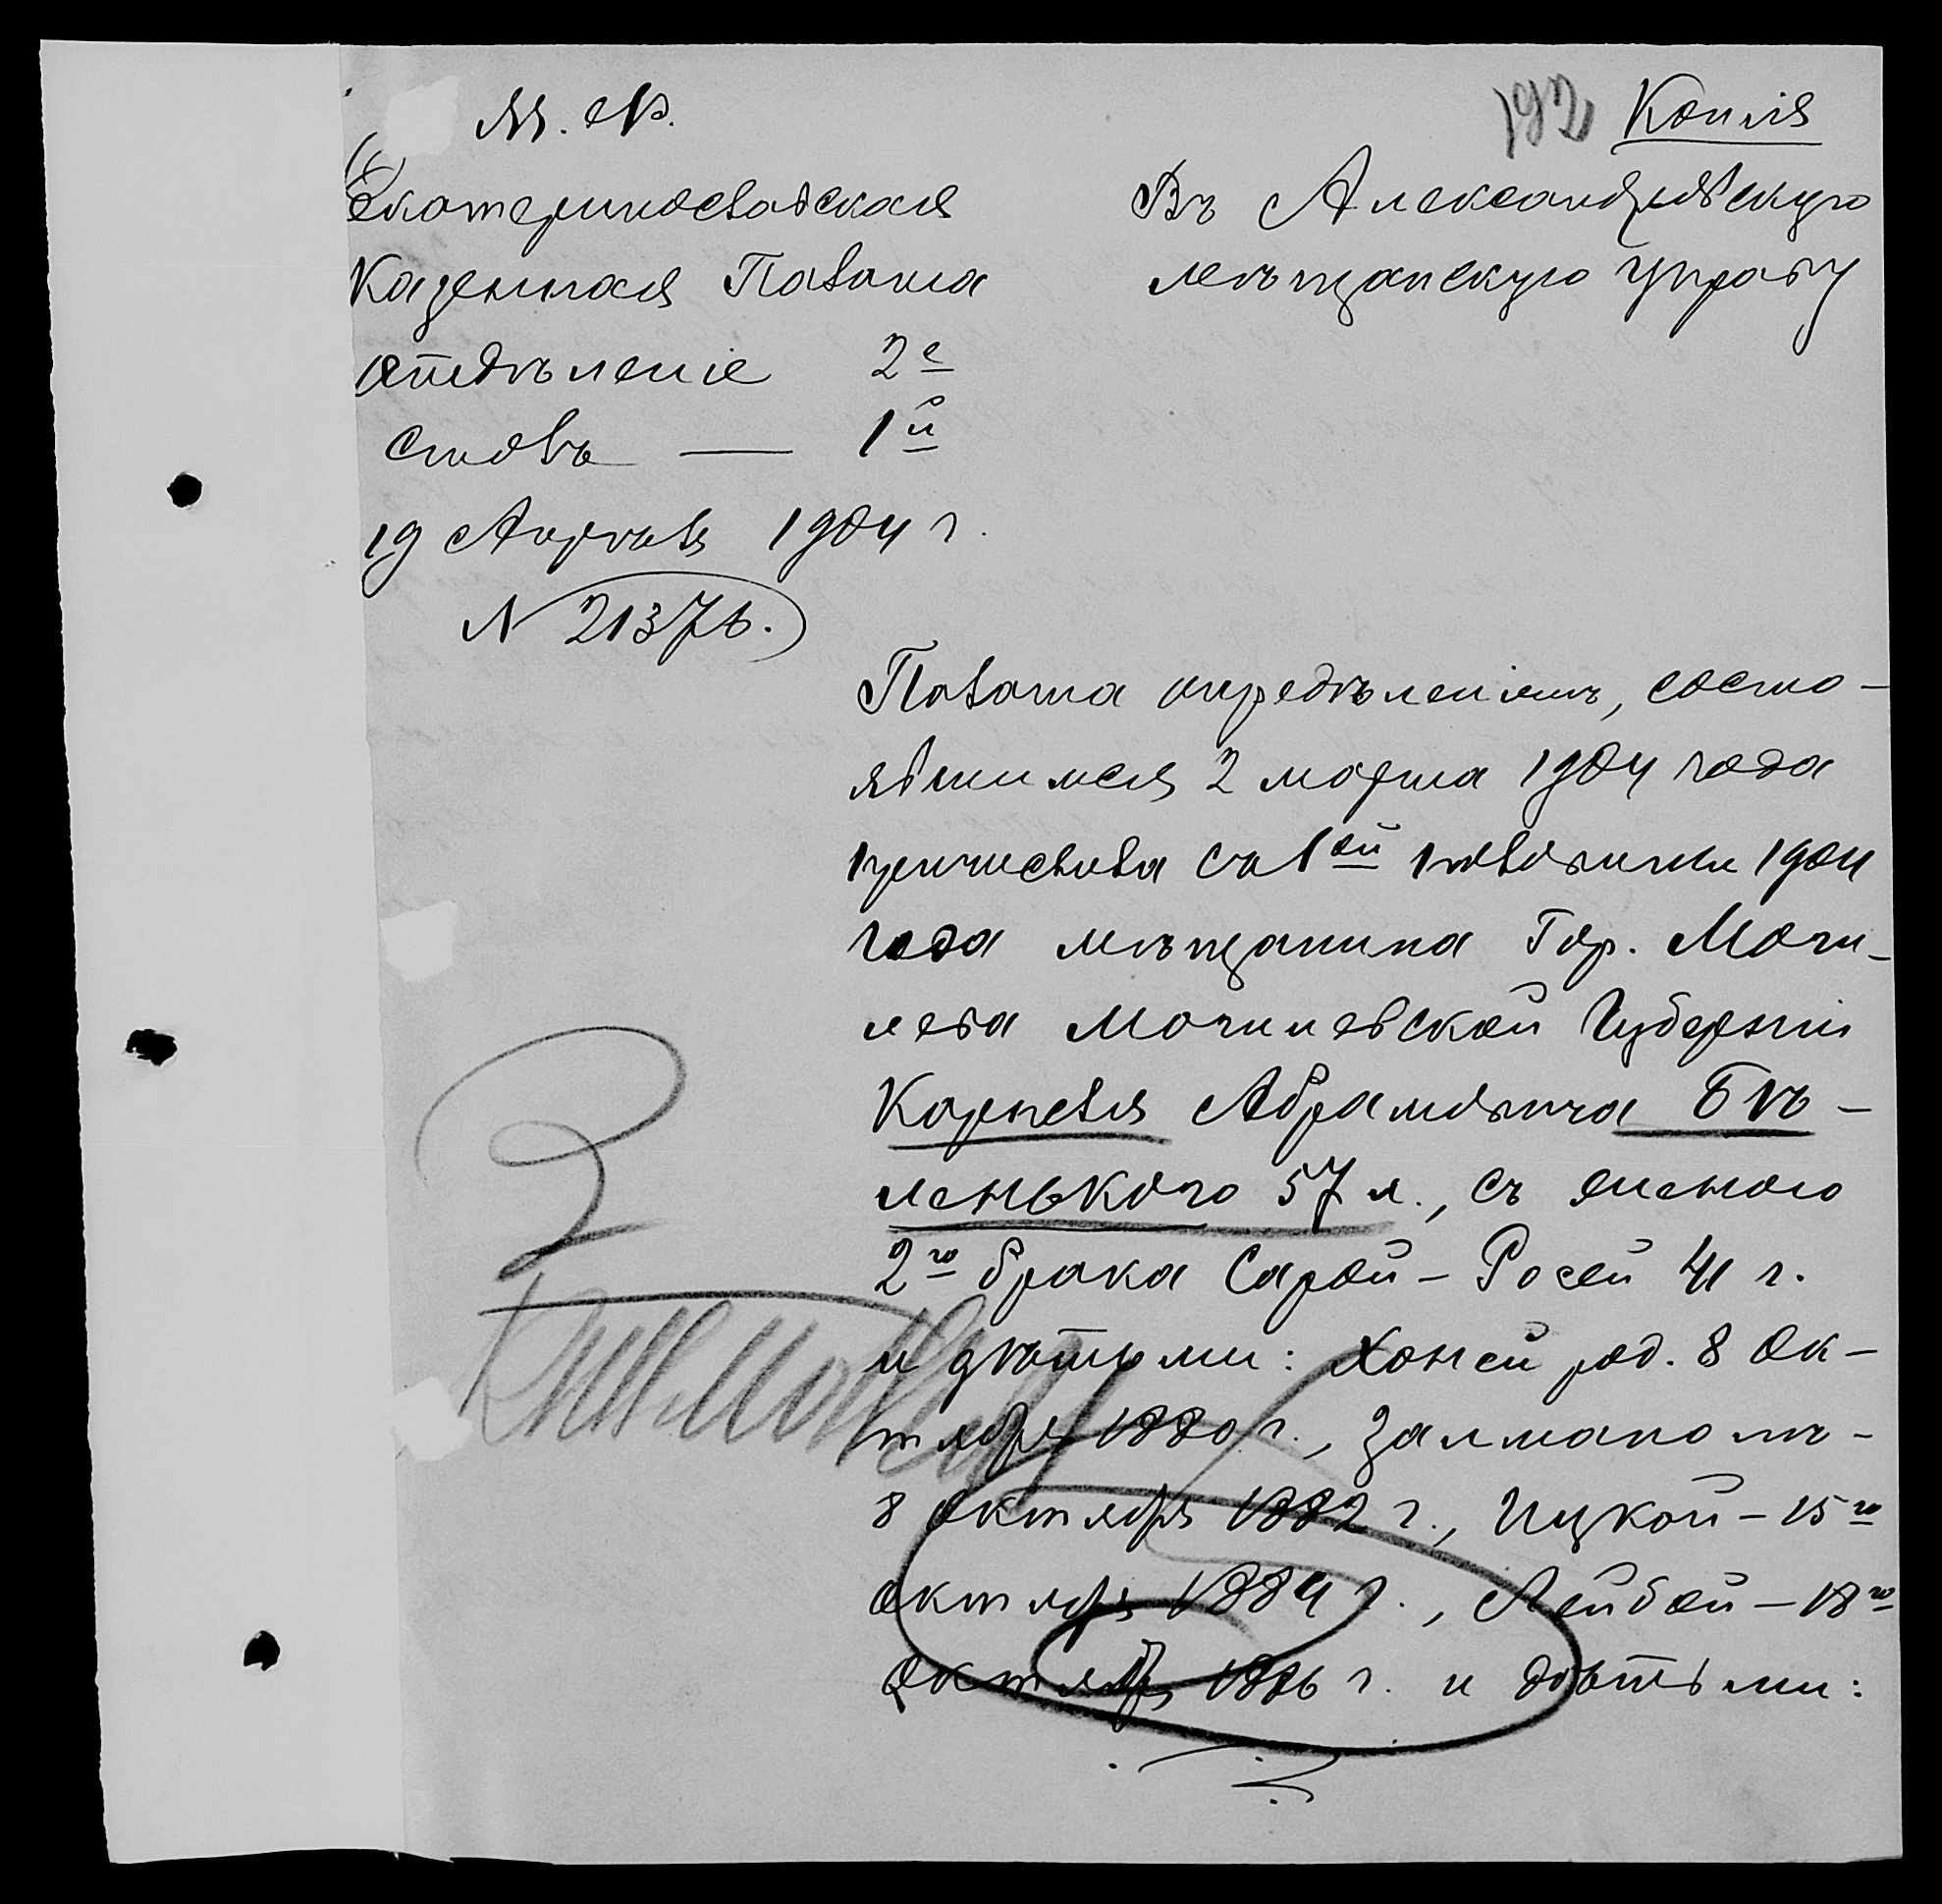 М. Ф.
192 Копія
Екатеринославская
Казенная Палата
отдѣленіе 2е
столъ — 1й
19 Апрѣля 1904 г.
N 21376.
Въ Александровскую
мѣщанскую управу
Палата опредѣленіемъ, состо-
явшимся 2 марта 1904 года
причислила съ 1ой половины 1904
года мѣщанина Гор. Моги-
лева Могилевской Губерніи
Корнелія Абрамовича Бѣ-
ленькаго 57 л., съ женою
2го брака Сарой-Росей 41 г.
и дѣтьми: Хоней род. 8 Ок-
тября 1880 г., Залманомъ-
8 октября 1882 г., Ицкой-15го
октября 1884 г., Лейбой-18го
октября 1886 г. и дѣтьми: